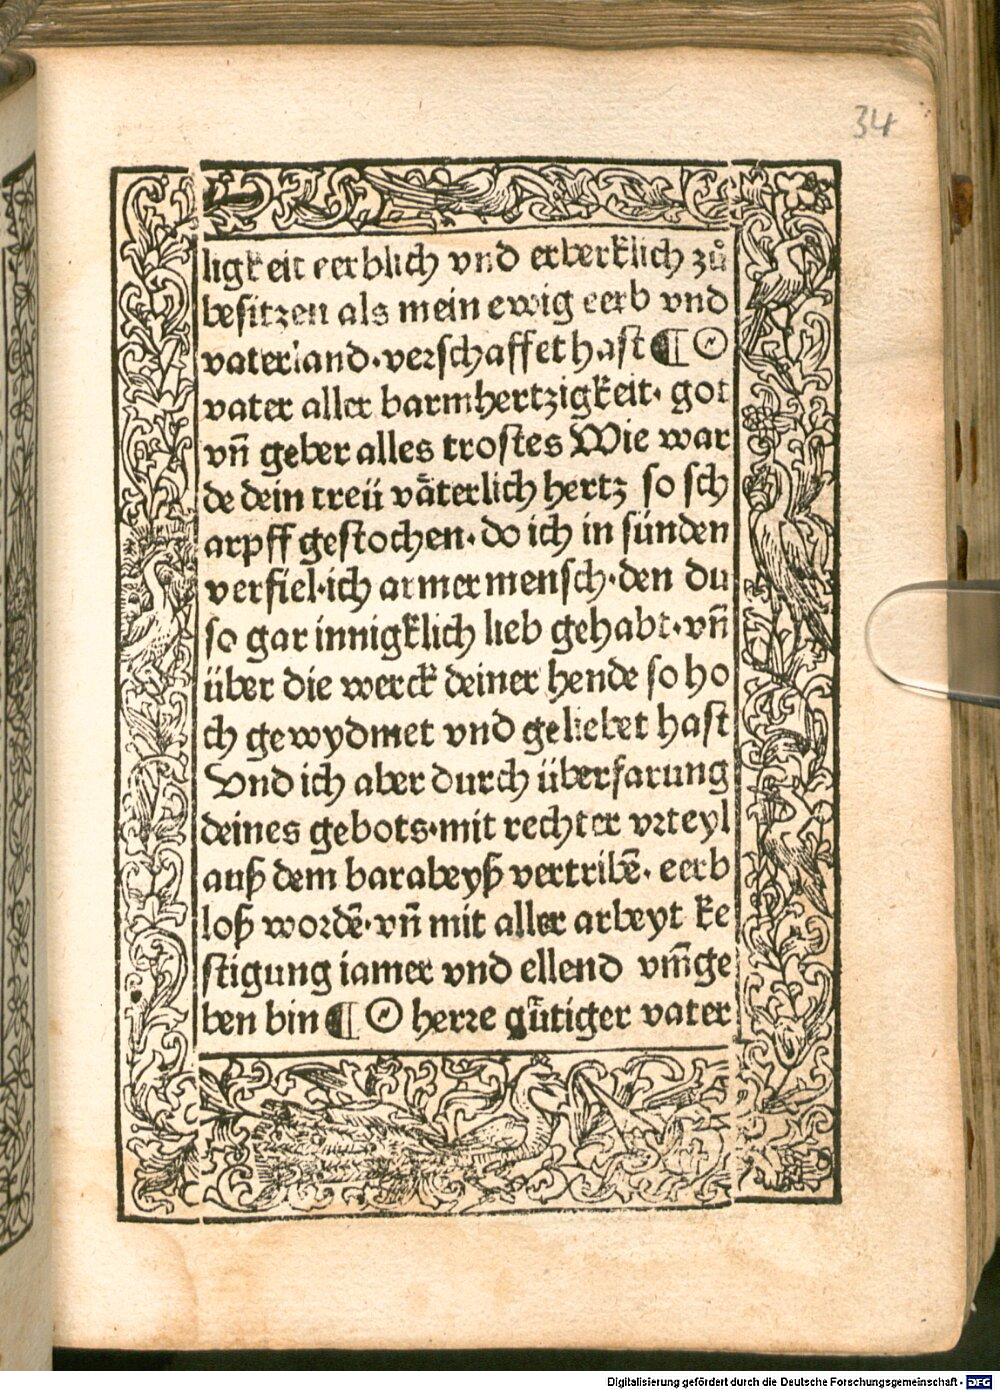 34
ligkeit eerblich vnd erberklich zů
besitzen als mein ewig eerb vnd
vaterland·verschaffet hast ¶ O
vater aller barmhertzigkeit· got
vn̄ geber alles trostes Wie war
de dein treü vaͤterlich hertz so sch
arpff gestochen·do ich in sünden
verfiel·ich armer mensch·den du
so gar innigklich lieb gehabt·vn̄
über die werck deiner hende so ho
ch gewydmet vnd geliebet hast
Vnd ich aber durch überfarung
deines gebots·mit rechter vrteyl
auß dem barabeyß vertribē· eerb
loß wordē·vn̄ mit aller arbeyt ke
stigung iamer vnd ellend vm̄ge
ben bin ¶ O herre guͤtiger vater
Digitalisierung gefördert durch die Deutsche Forschungsgemeinschaft - DFG